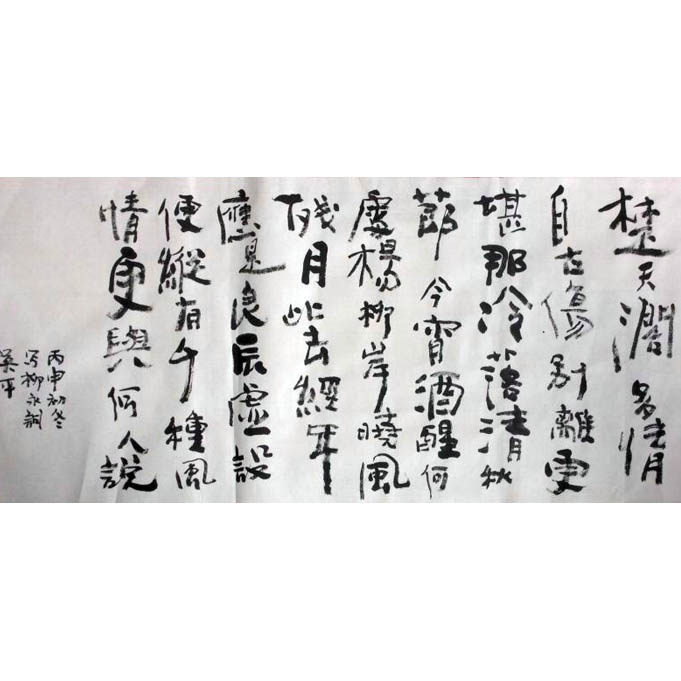 楚天濶多情
自古傷別離更
堪那冷落清秋
節今宵酒醒何
處楊柳岸曉風
殘月此去經年
應是良辰虛設
便縱有千種風
情更與何人説
丙申初冬
写柳永詞
平